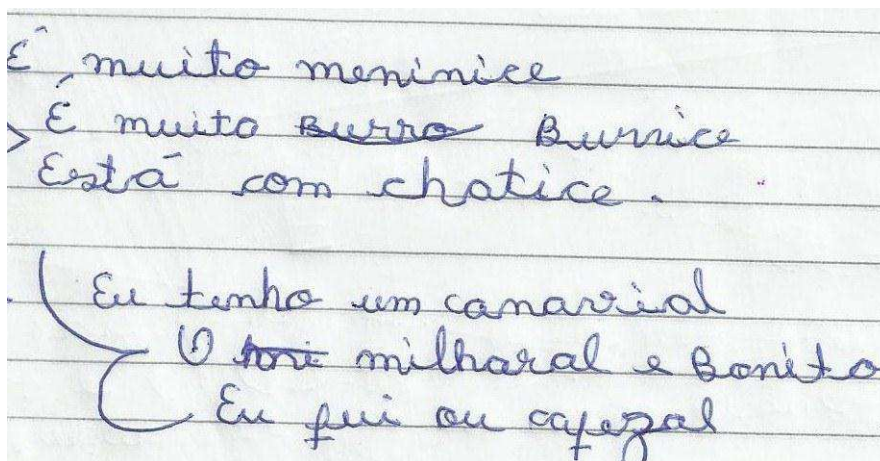 É muito meninice
É muito Burro Burrice
Está com chatice.
Eu tenho um canavial
O mi milharal e Bonito
Eu fui ou cafezal